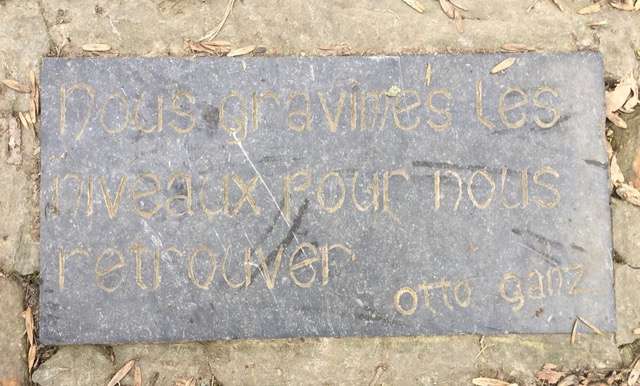 Nous gravîmes les
niveaux pour nous
retrouver
otto ganz